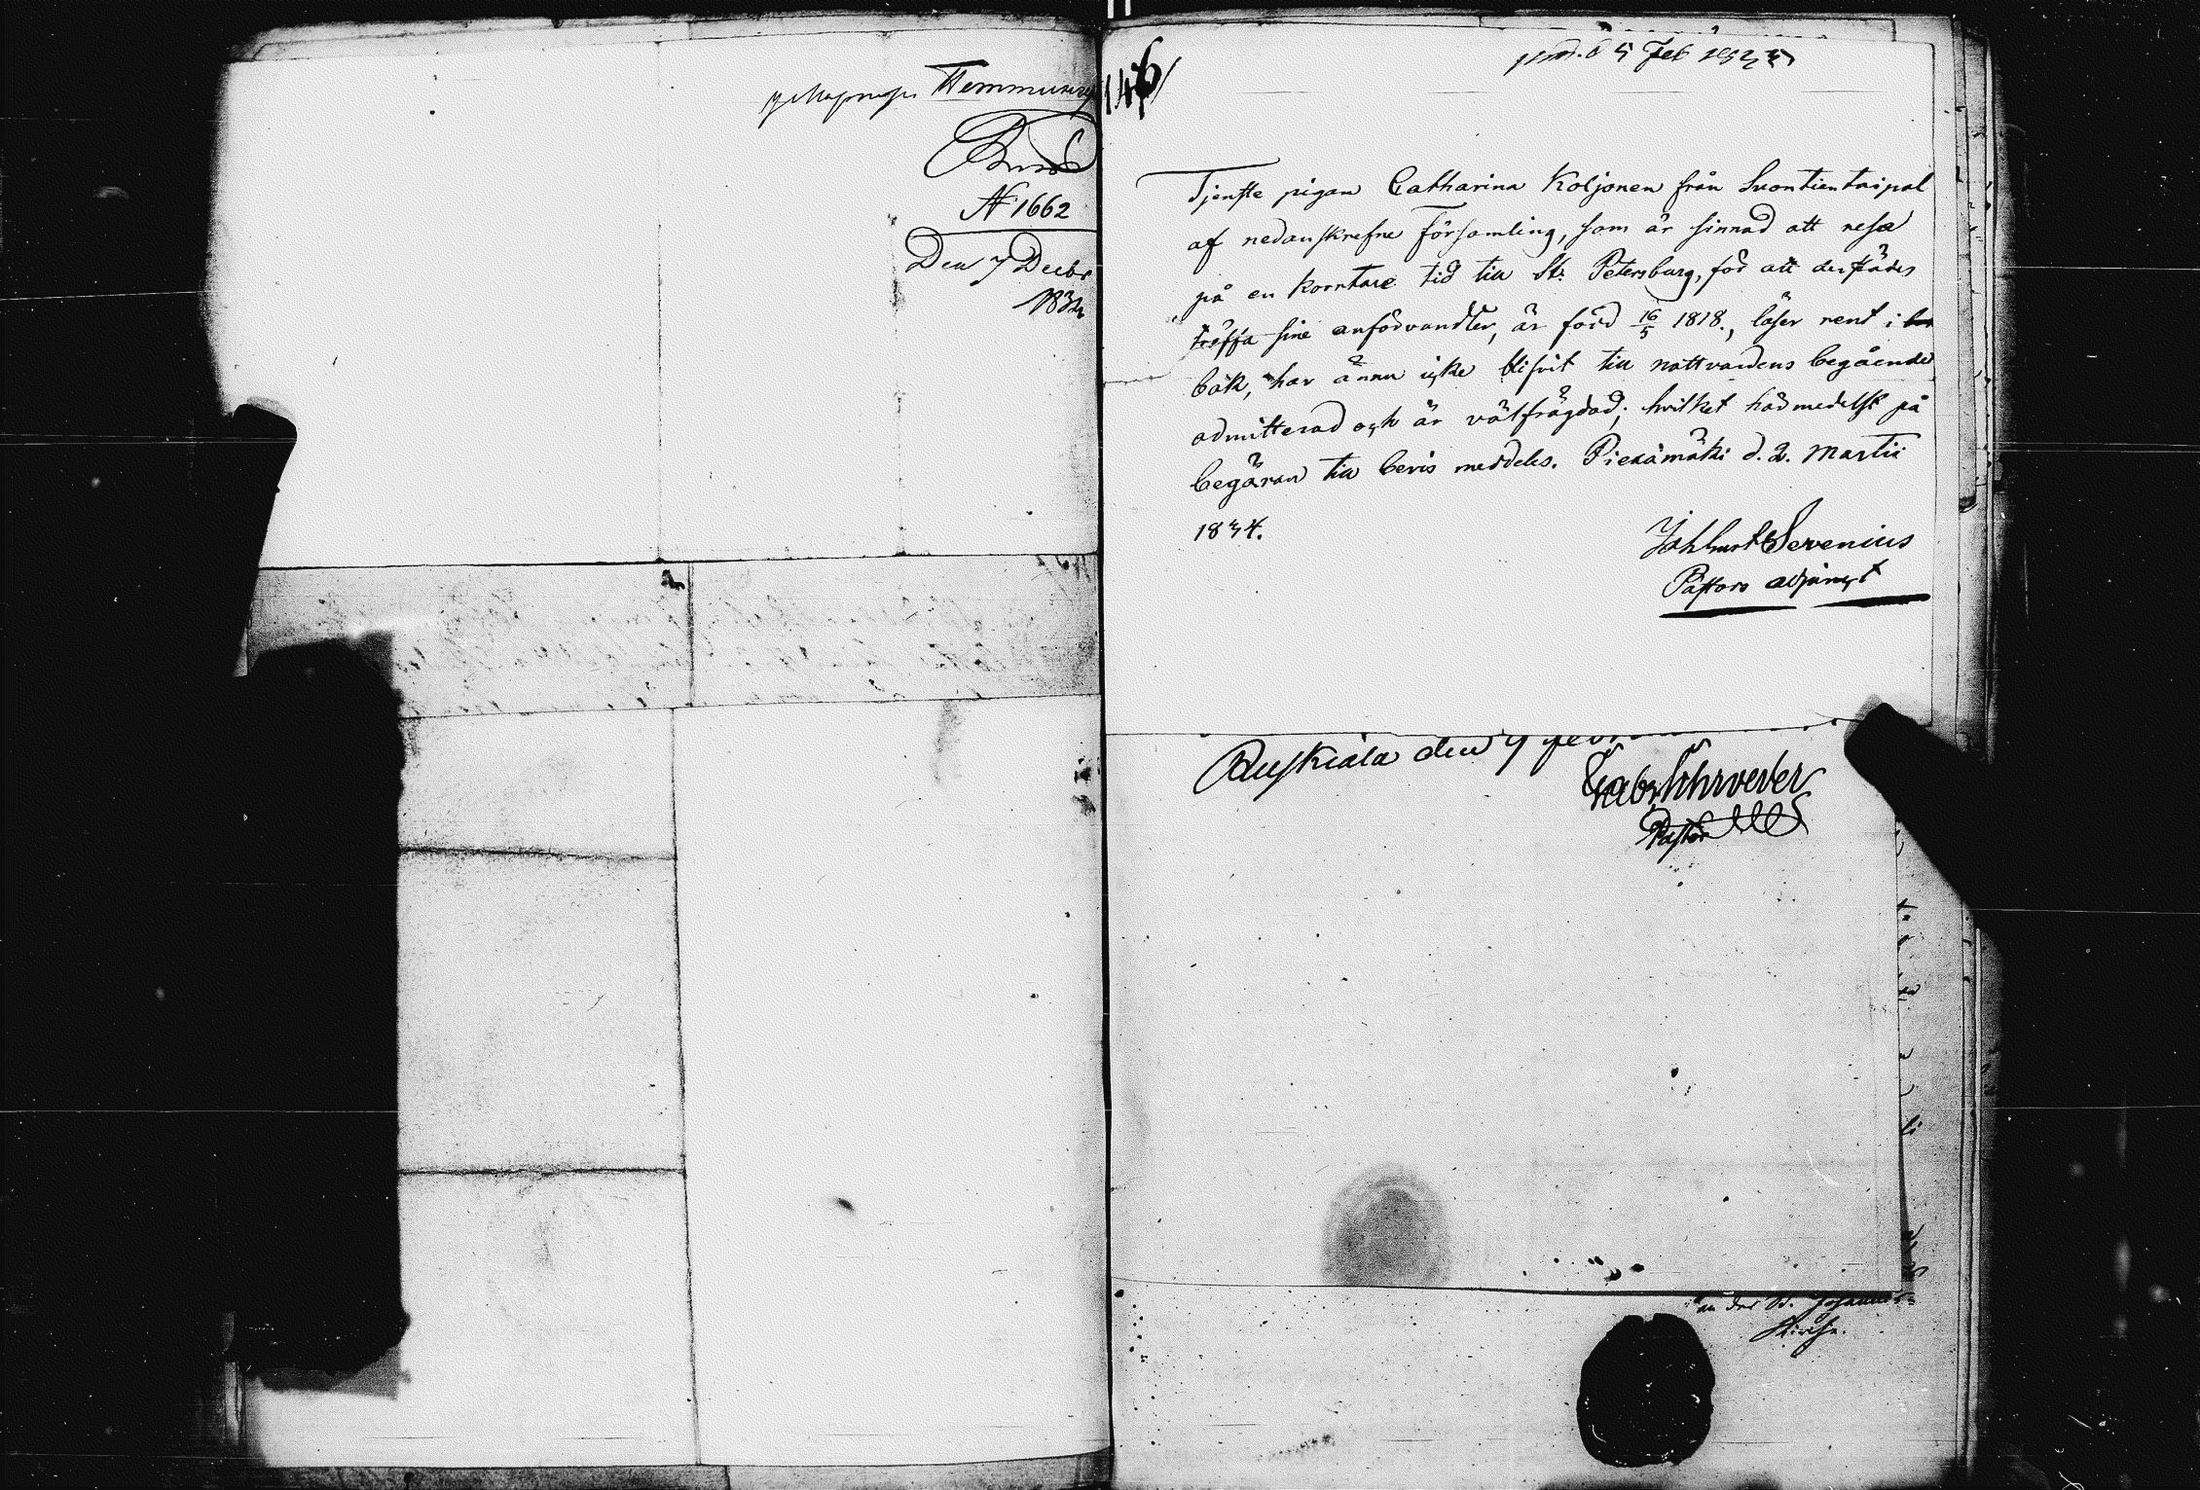 Hemmuinen
N 1662
Den 7 Decbr
1832
146
5 Feb
Tjenste pigan Catharina Koljonen från Suontientaipal
af nedanskrefne Församling, som är sinnad att resa
på en korrtare tid till St. Petersburg, för att derstädes
träffa sine anförvandter, är född 16/5 1818., läser rent i
bok, har ännu icke blifvit till nattvardens begående
admitterad och är välfrägdad; hvilket härmedelst på
begäran till bevis meddeles. Piexämäki d. 2. Martii
1834.
Severius
Pastors adjunct
Ruskiala den 9
Gabr Schrveder
Pastor
an der St. Johannis-
Kirche.